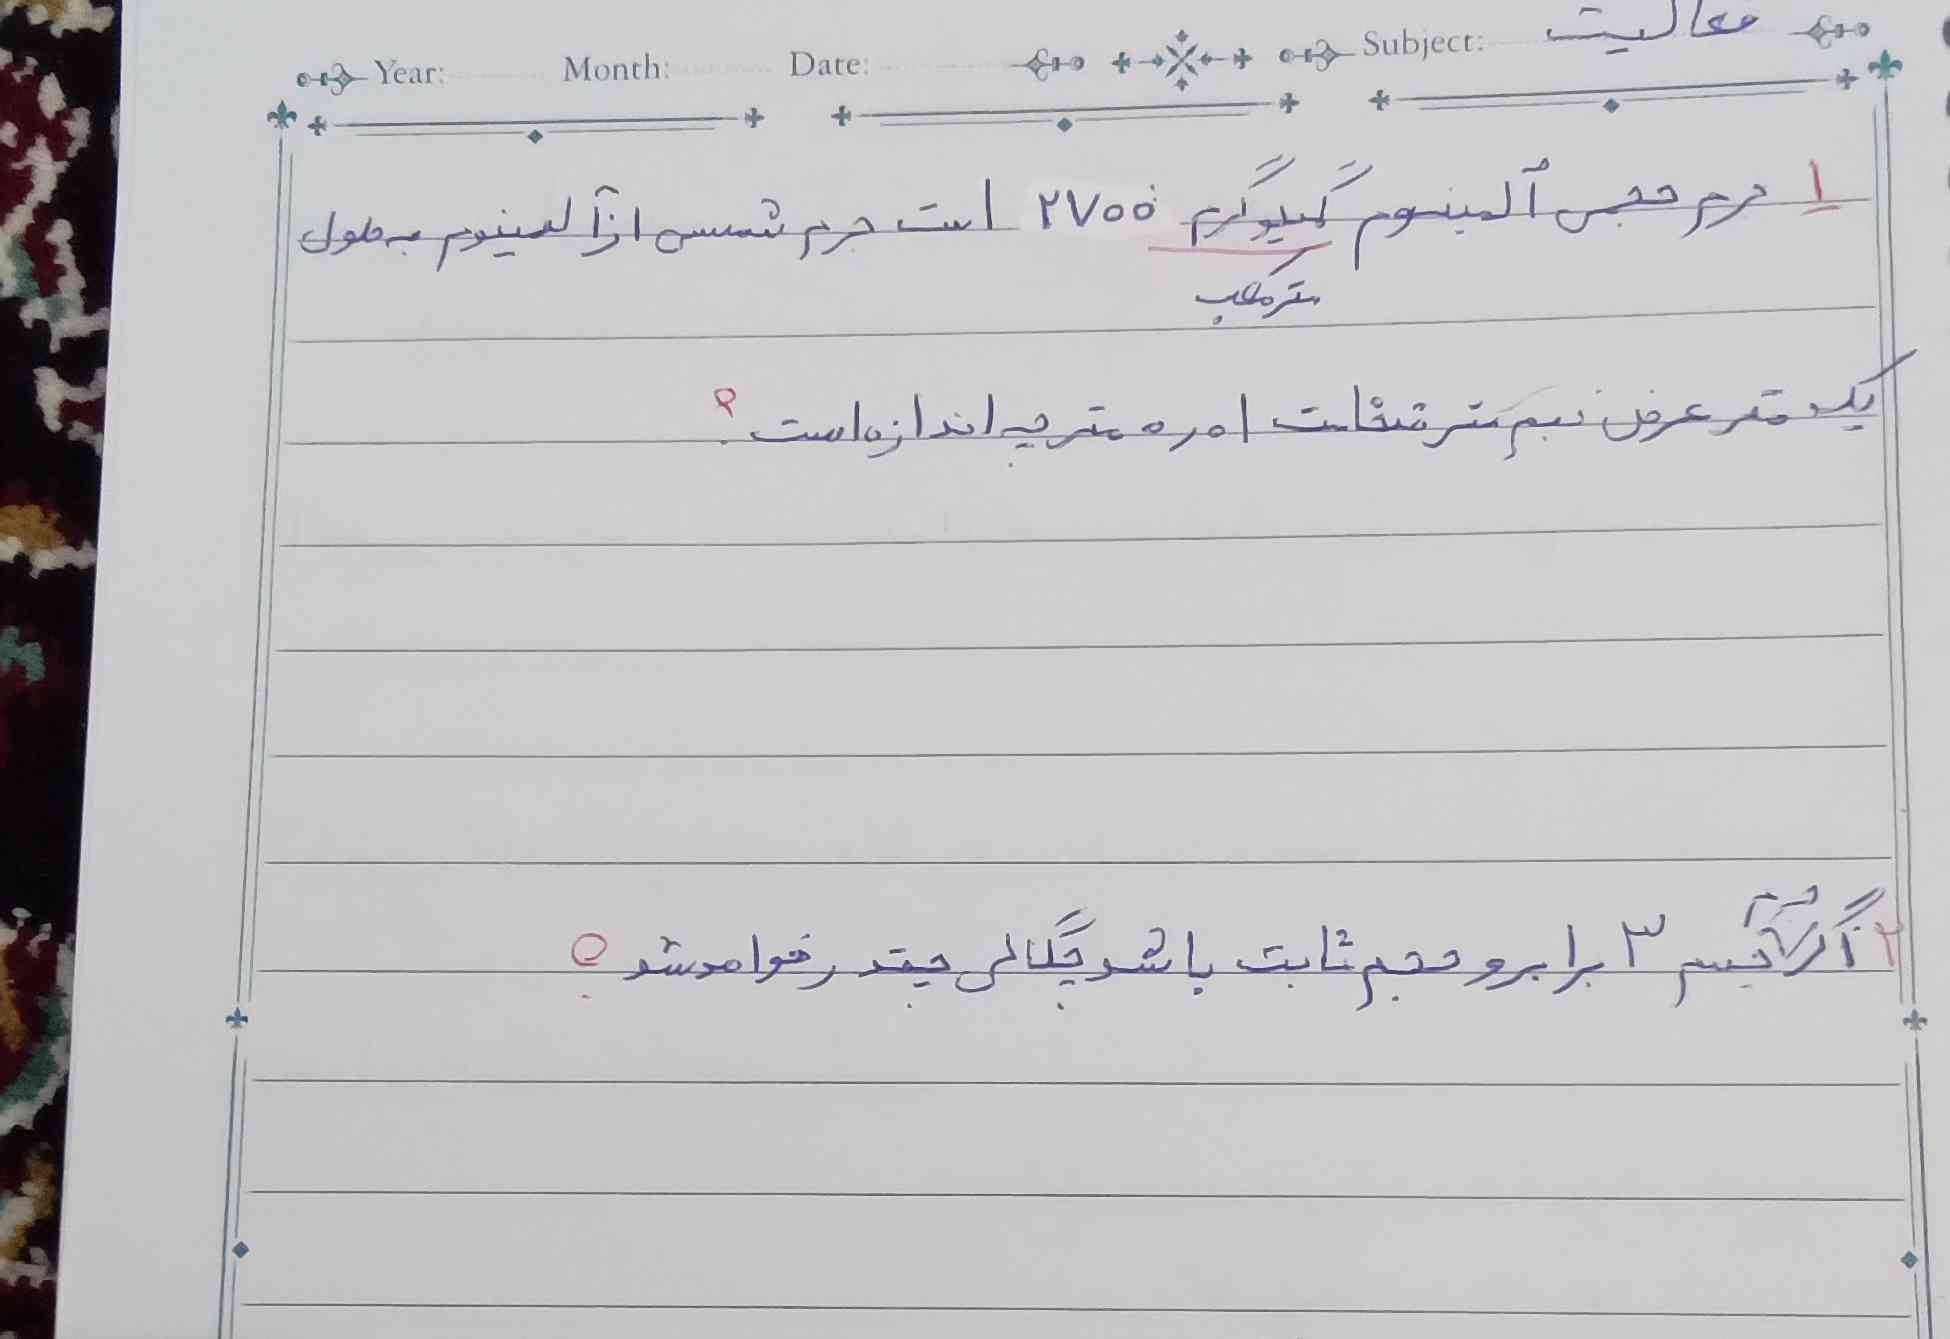 Year: Month: Date: Subject: فعالیت
۱ جرم حجمی آلمینیوم کیلوگرم ۲۷۰۰ است جرم شمسی از آلمینیوم به طول
مترمکعب
یک متر عرض نیم متر ضخامت ۰٫۱ متر چه اندازه است؟
۲ اگر جرم جسم ۳ برابر و حجم ثابت باشد چگالی چقدر خواهد شد؟